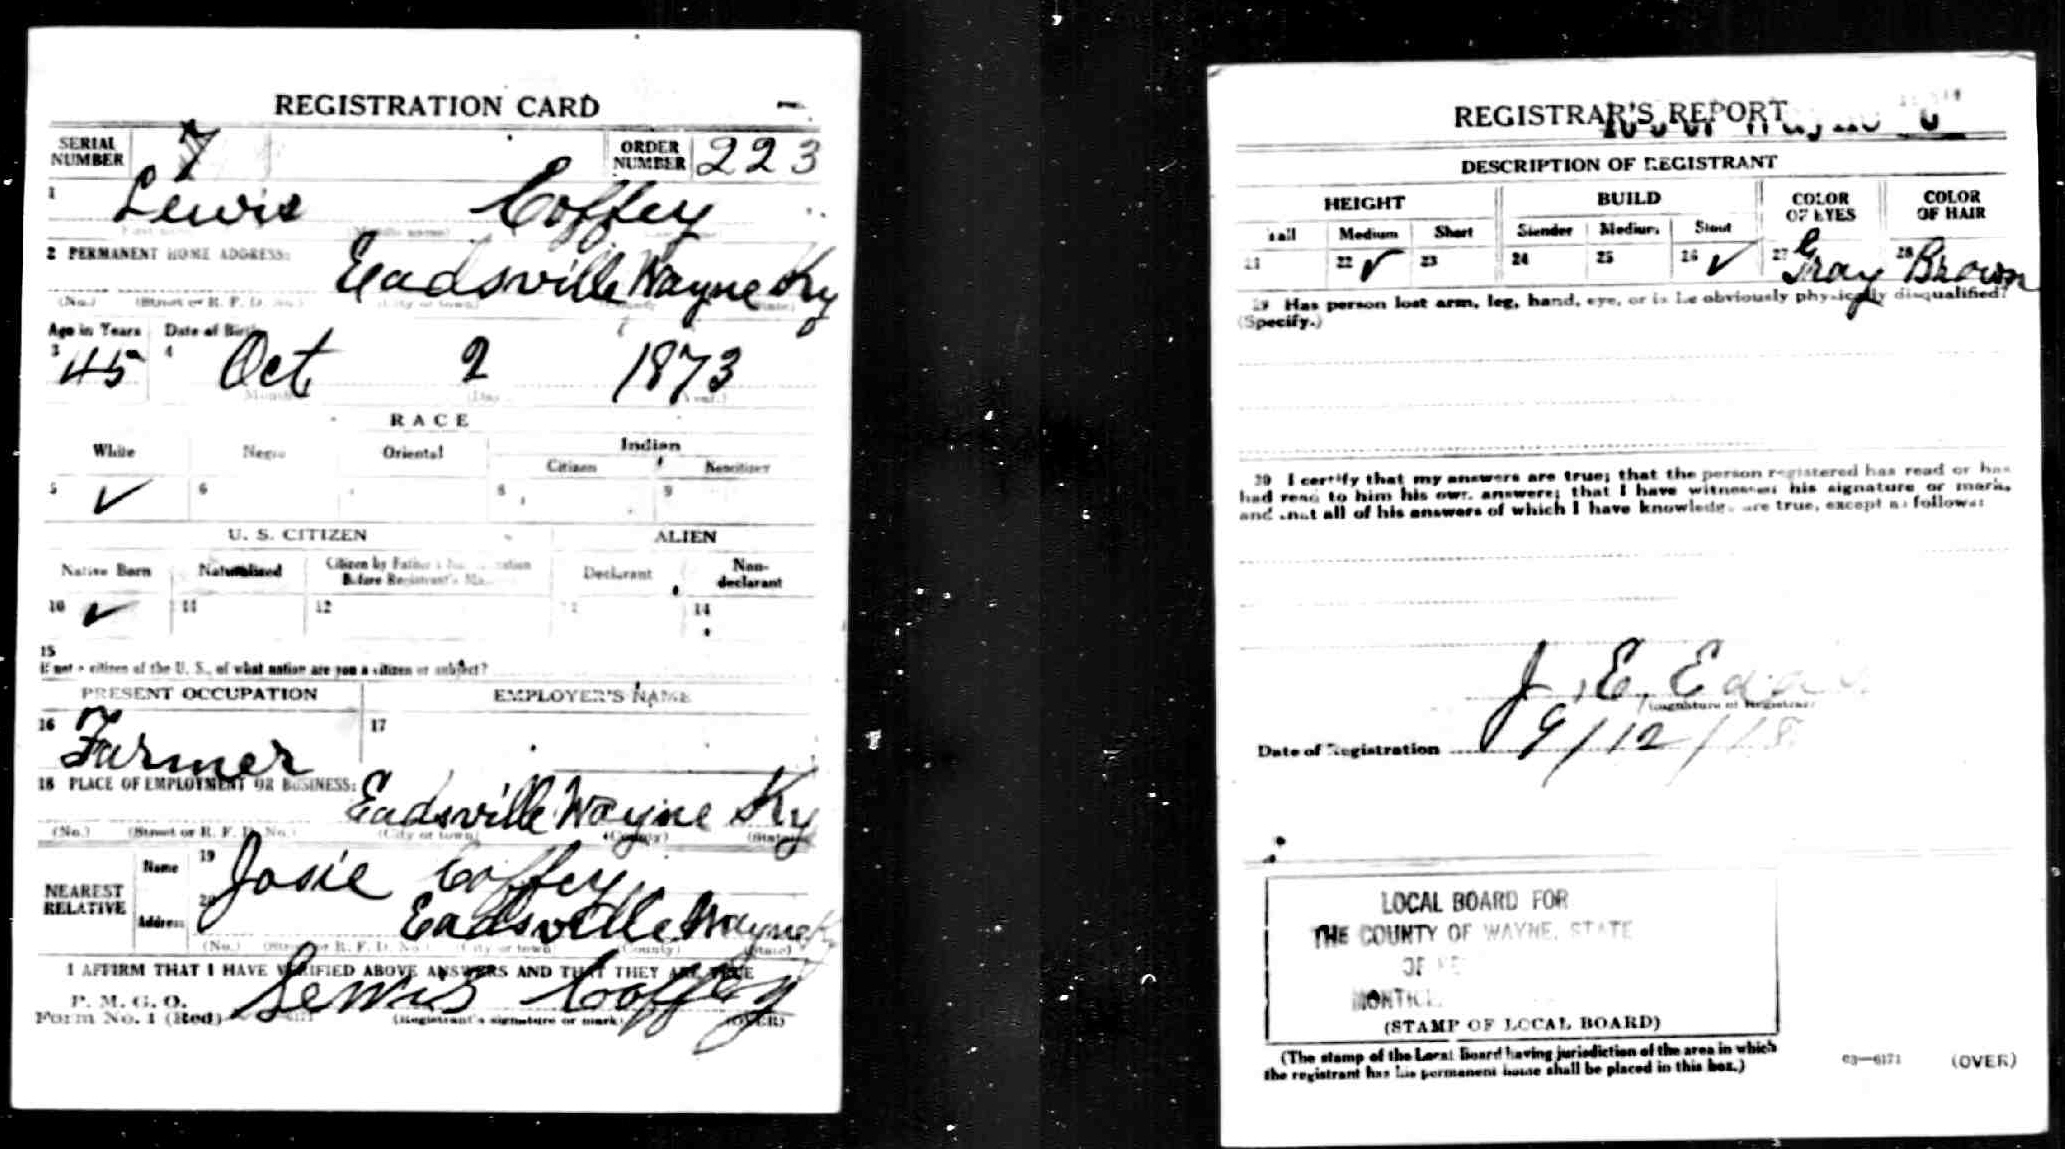 REGISTRATION CARD
SERIAL NUMBER 7 ORDER NUMBER 223
1 Lewis Coffey
(Middle name)
2 PERMANENT HOME ADDRESS:
Eadsville Wayne Ky
(No.) (Street or R. F. D. No.) (City or town) (State)
Age in Years Date of Birth
3 45 4 Oct. 2 1873
(Month) (Day) (Year.)
RACE
White Negro Oriental Indian
Citizen Noncitizen
5 ✓ 6 8 9
U. S. CITIZEN ALIEN
Native Born Naturalized Citizen by Father's Before Registrant's Declarant Non-declarant
10 ✓ 11 12 14
15
If not a citizen of the U. S., of what nation are you a citizen or subject?
PRESENT OCCUPATION EMPLOYER'S NAME
16 Farmer 17
18 PLACE OF EMPLOYMENT OR BUSINESS:
Eadsville Wayne Ky
(No.) (Street or R. F. D. No.) (City or town) (County) (State)
NEAREST RELATIVE
Name 19 Josie Coffey
Address 20 Eadsville Wayne
(No.) (Street or R. F. D. No.) (City or town) (County) (State)
I AFFIRM THAT I HAVE VERIFIED ABOVE ANSWERS AND THAT THEY ARE TRUE
P. M. G. O.
Form No. 1 (Red) Lewis Coffey
(Registrant's signature or mark) (OVER)
REGISTRAR'S REPORT
DESCRIPTION OF REGISTRANT
HEIGHT BUILD COLOR OF EYES COLOR OF HAIR
Tall Medium Short Slender Medium Stout
21 22 ✓ 23 24 25 26 ✓ 27 Gray 28 Brown
29 Has person lost arm, leg, hand, eye, or is he obviously physically disqualified?
(Specify.)
30 I certify that my answers are true; that the person registered has read or has
had read to him his own answers; that I have witnessed his signature or mark,
and that all of his answers of which I have knowledge are true, except as follows:
J. E.
(Signature of Registrar)
Date of Registration 9/12/18
LOCAL BOARD FOR
THE COUNTY OF WAYNE, STATE
OF
(STAMP OF LOCAL BOARD)
(The stamp of the Local Board having jurisdiction of the area in which
the registrant has his permanent home shall be placed in this box.)
03—6171 (OVER)